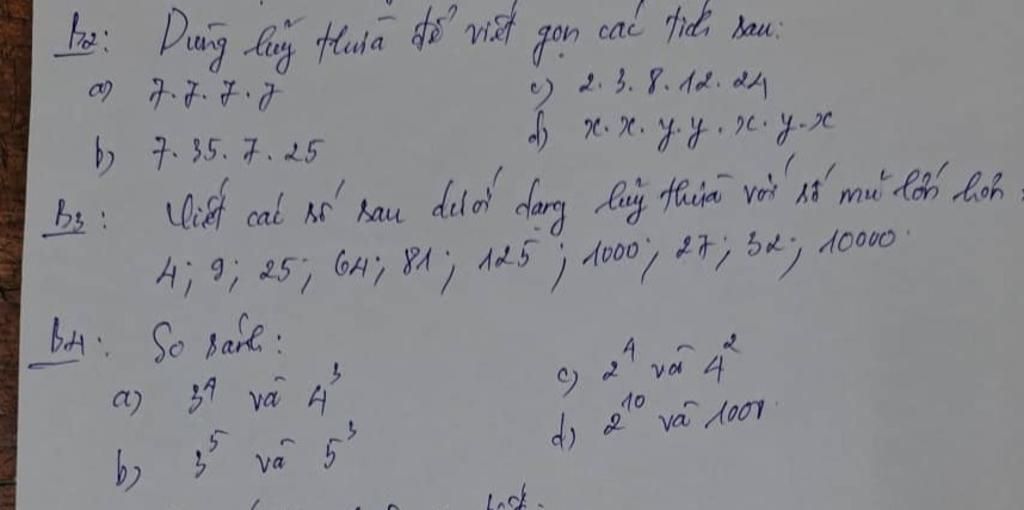 B2: Dùng luỹ thừa để viết gọn các tích sau:
a) 7.7.7.7
c) 2.3.8.12.24
b) 7.35.7.25
d) x.x.y.y.x.y.x
B3: Viết các số sau dưới dạng luỹ thừa với số mũ lớn hơn
4; 9; 25; 64; 81; 125; 1000; 27; 32; 10000.
B4: So sánh:
a) 3⁴ và 4³
c) 2⁴ và 4²
b) 3⁵ và 5³
d) 2¹⁰ và